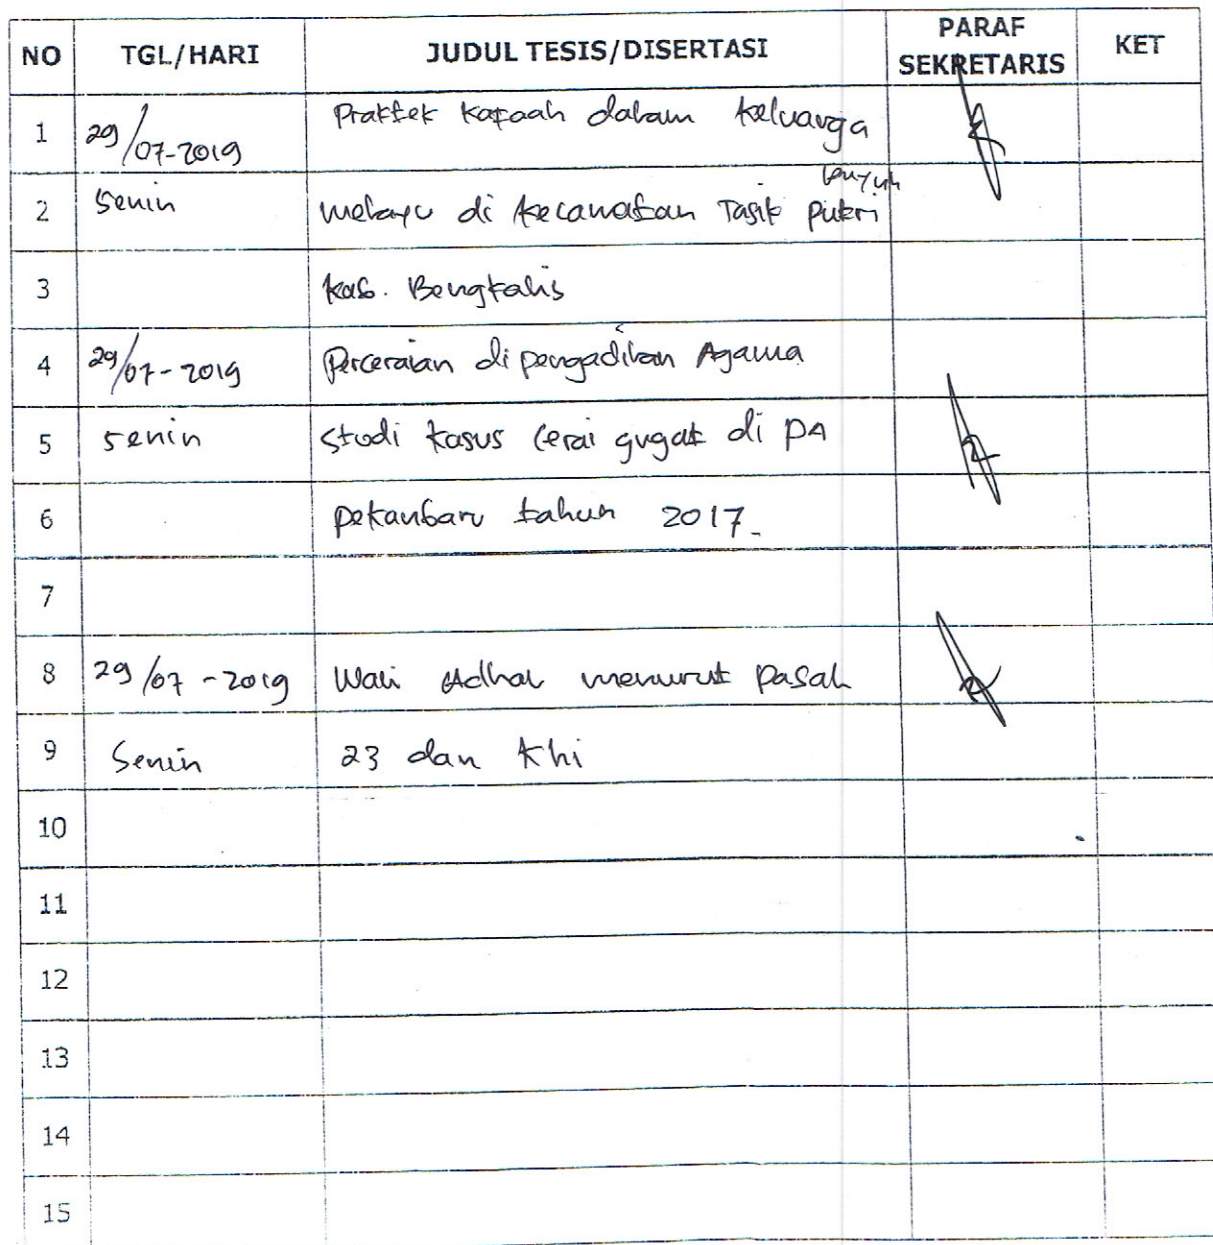 NO TGL/HARI JUDUL TESIS/DISERTASI PARAF SEKRETARIS KET
1 29/07-2019 Praktek Kafaah dalam keluarga
2 Senin melayu di kecamatan Tasik putri
3 kab. Bengkalis
4 29/07-2019 Perceraian di pengadilan Agama
5 senin studi kasus cerai gugat di PA
6 pekanbaru tahun 2017.
7
8 29/07-2019 Wali Adhal menurut pasal
9 Senin 23 dan Khi
10
11
12
13
14
15